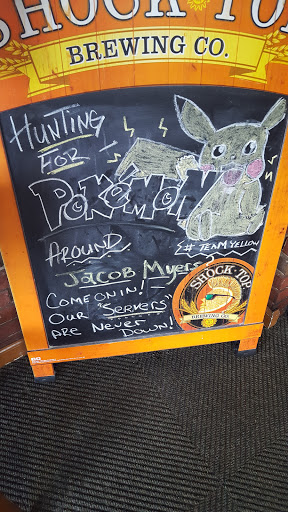 SHOCK TOP
BREWING CO.
HUNTING
FOR
POKéMON
AROUND
#TEAMYELLOW
JACOB MYERS?
COME ON IN!
OUR "SERVERS"
ARE NEVER
DOWN!
SHOCK TOP
BREWING CO.